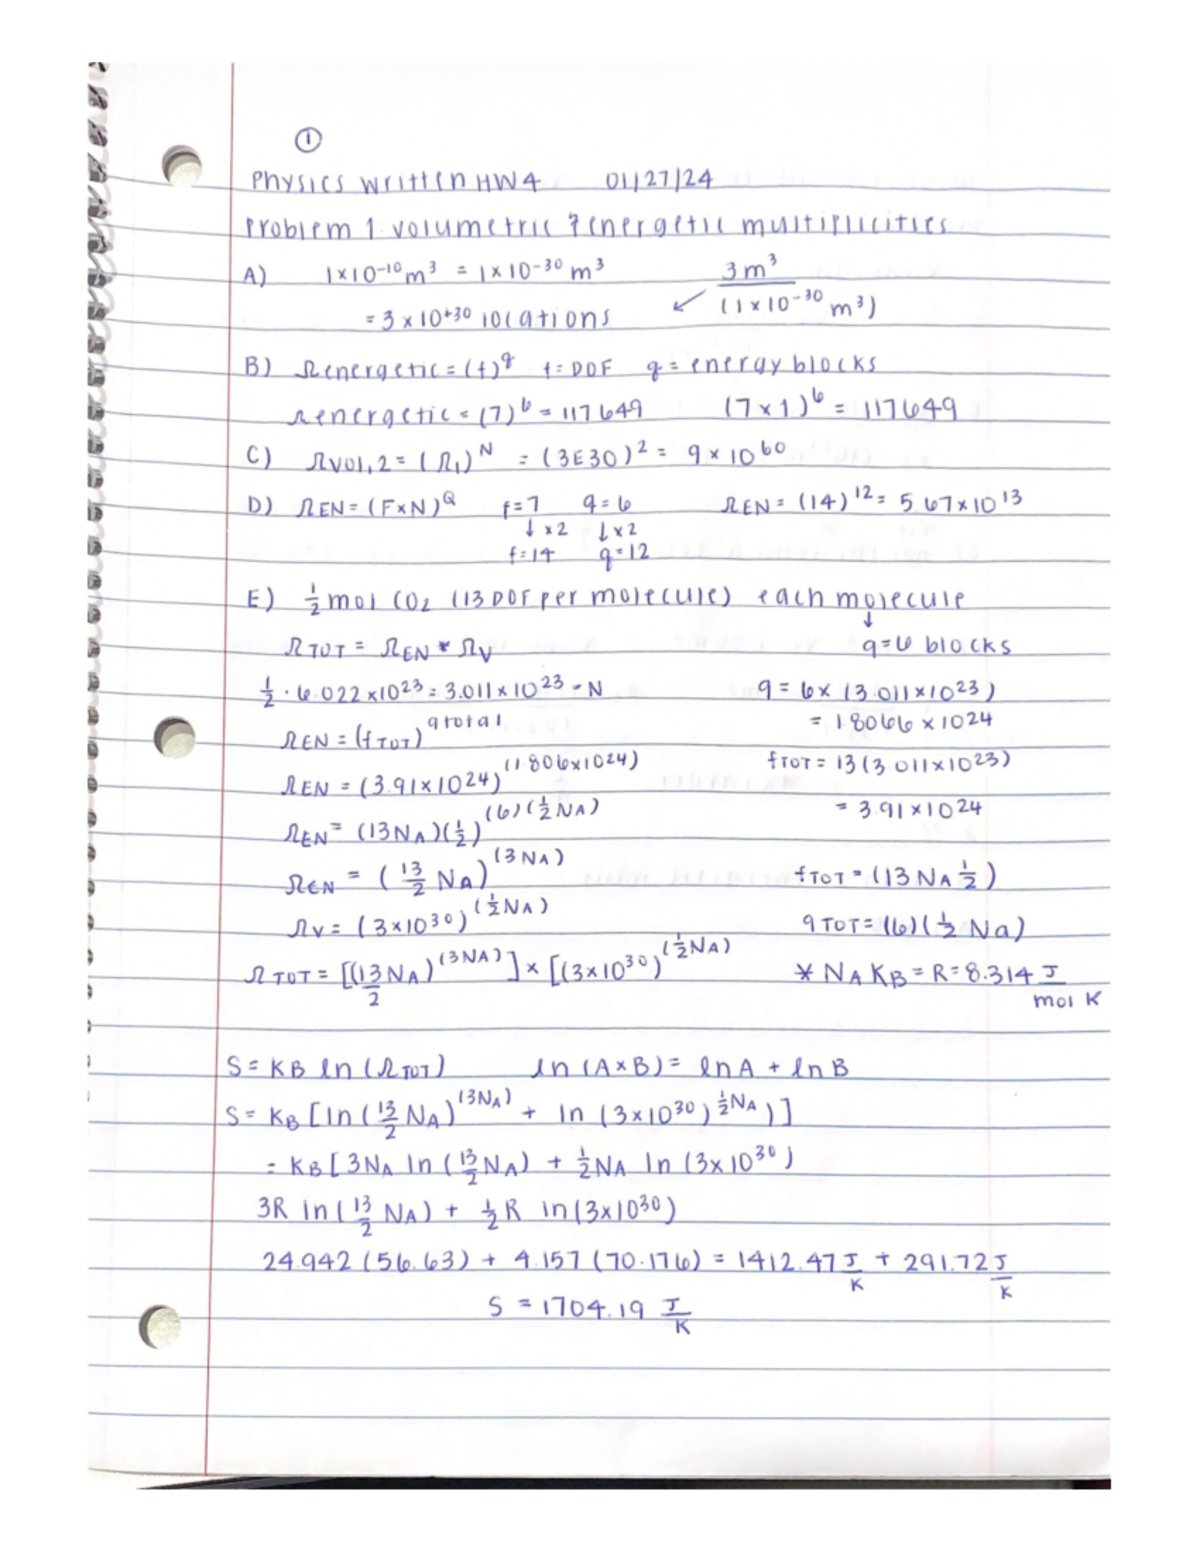 ①
Physics written HW4 01/27/24
Problem 1: volumetric & energetic multiplicities
A) 1×10⁻¹⁰m³ = 1×10⁻³⁰ m³ 3m³ / (1×10⁻³⁰ m³)
= 3×10⁺³⁰ locations ↙
B) Ωenergetic = (f)^q f = DOF q = energy blocks
Ωenergetic = (7)⁶ = 117649 (7×1)⁶ = 117649
C) Ωvol,2 = (Ω₁)^N = (3E30)² = 9×10⁶⁰
D) ΩEN = (F×N)^Q f=7 q=6 ΩEN = (14)¹² = 5.67×10¹³
↓×2 ↓×2
f=14 q=12
E) ½ mol CO₂ (13 DOF per molecule) each molecule
↓
ΩTOT = ΩEN * ΩV q=6 blocks
½ · 6.022×10²³ = 3.011×10²³ = N q = 6×(3.011×10²³)
= 1.8066×10²⁴
ΩEN = (fTOT)^qtotal
ΩEN = (3.91×10²⁴)^(1.806×10²⁴) fTOT = 13(3.011×10²³)
= 3.91×10²⁴
ΩEN = (13NA)(½)^(6)(½NA)
ΩEN = (13/2 NA)^(3NA) fTOT = (13NA ½)
ΩV = (3×10³⁰)^(½NA) qTOT = (6)(½ Na)
ΩTOT = [(13/2 NA)^(3NA)] × [(3×10³⁰)^(½NA) * NA KB = R = 8.314 J/mol K
S = KB ln(ΩTOT) ln(A×B) = lnA + lnB
S = KB [ln(13/2 NA)^(3NA) + ln(3×10³⁰)^½NA)]
= KB[3NA ln(13/2 NA) + ½NA ln(3×10³⁰)
3R ln(13/2 NA) + ½R ln(3×10³⁰)
24.942(56.63) + 4.157(70.176) = 1412.47 J/K + 291.72 J/K
S = 1704.19 J/K